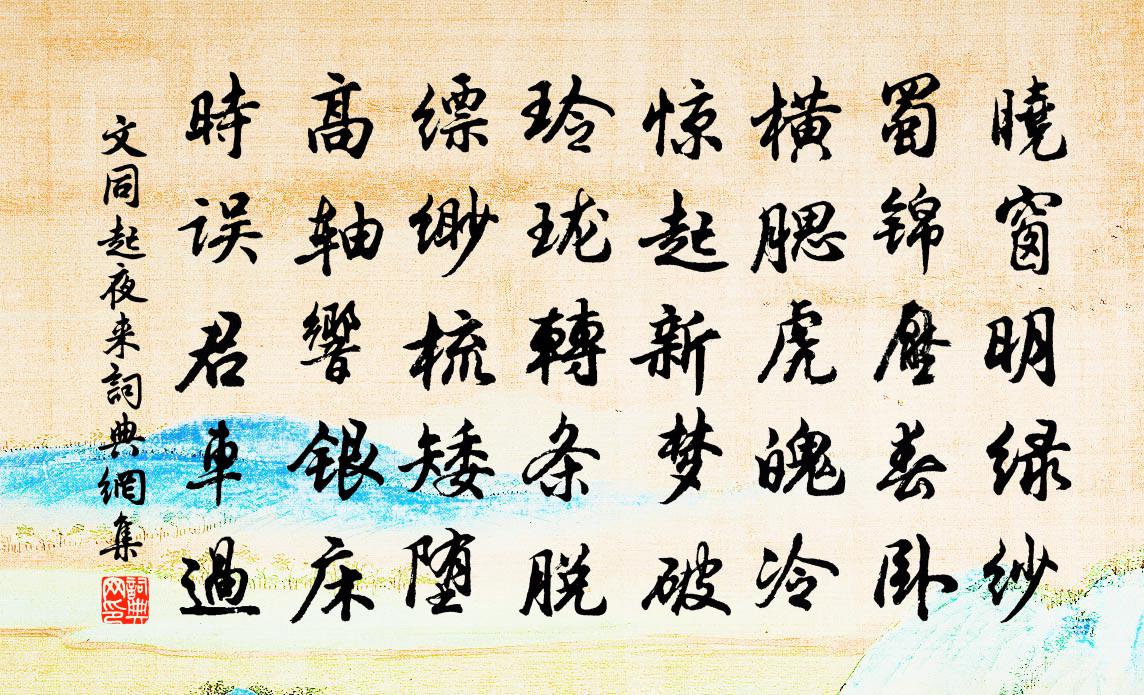 曉窗明绿纱
蜀锦壓春卧
横腮虎魄冷
惊起新梦破
玲珑轉条脱
缥缈梳矮堕
高軸響银床
時误君車過
文同起夜来詞典網集
詞典网印